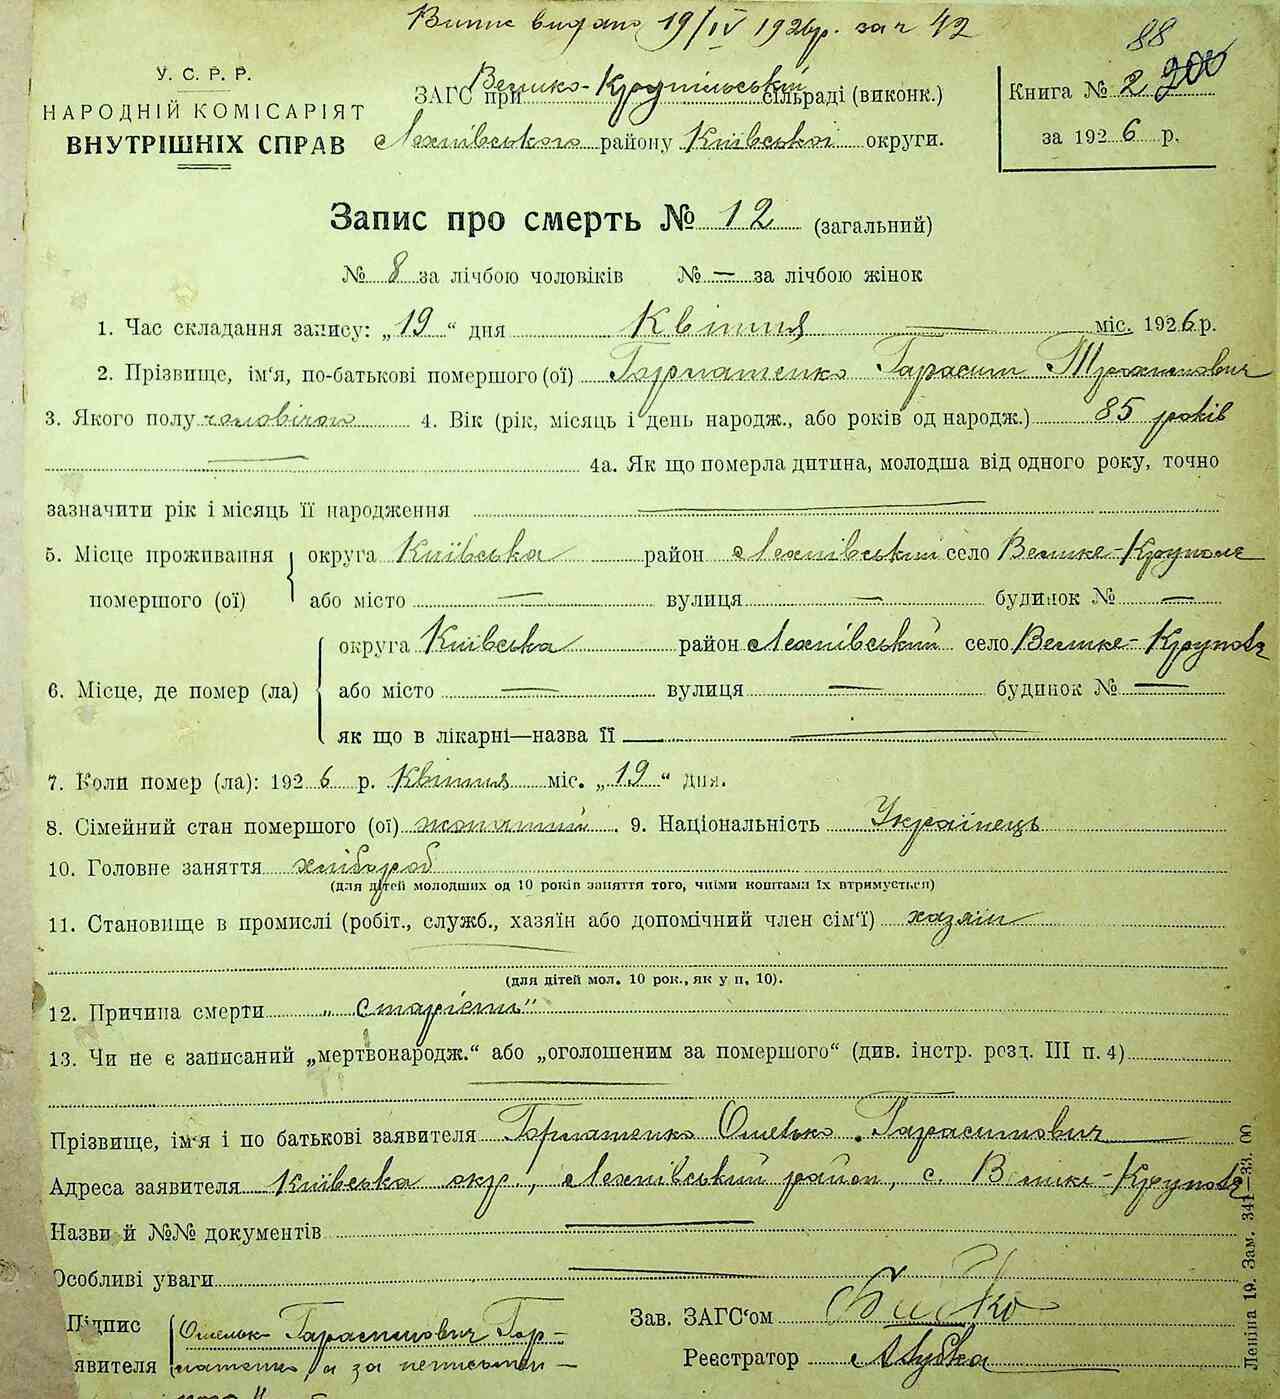 Випис видано 19/IV 1926р. за ч 42
88
У. С. Р. Р.
НАРОДНІЙ КОМІСАРІЯТ
ВНУТРІШНІХ СПРАВ
ЗАГС при Велико-Крупільській сільраді (виконк.)
району Київської округи.
Книга № 2 200
за 1926 р.
Запис про смерть № 12 (загальний)
№ 8 за лічбою чоловіків № — за лічбою жінок
1. Час складання запису: „19“ дня Квітня — міс. 1926 р.
2. Прізвище, ім‘я, по-батькові помершого (ої) Горпатенко Гарасим
3. Якого полу чоловічого 4. Вік (рік, місяць і день народж., або років од народж.) 85 років
— 4а. Як що померла дитина, молодша від одного року, точно
зазначити рік і місяць її народження —
5. Місце проживання помершого (ої) округа Київська район село Велике-Круполє
або місто — вулиця — будинок № —
6. Місце, де помер (ла) округа Київська район село Велике-Круполє
або місто — вулиця — будинок № —
як що в лікарні—назва її —
7. Коли помер (ла): 1926 р. Квітня міс. „19“ дня.
8. Сімейний стан помершого (ої) жонатий. 9. Національність Українець
10. Головне заняття хлібороб
(для дітей молодших од 10 років заняття того, чиїми коштами їх втримується)
11. Становище в промислі (робіт., служб., хазяїн або допомічний член сім‘ї) хазяїн
—
(для дітей мол. 10 рок., як у п, 10).
12. Причина смерти „старість“
13. Чи не є записаний „мертвонародж.“ або „оголошеним за помершого“ (див. інстр. розд. III п. 4)
—
Прізвище, ім‘я і по батькові заявителя Горпатенко Омелько Гарасимович
Адреса заявителя Київська окр., район, с. Велике-Круполє
Назви й №№ документів —
Особливі уваги —
Підпис
явителя
Омельк Гарасимович Гор-
патенко, а за неписьмен-
ного
Зав. ЗАГС‘ом
Реєстратор
Леніна 19. Зам. 341—33. 00.